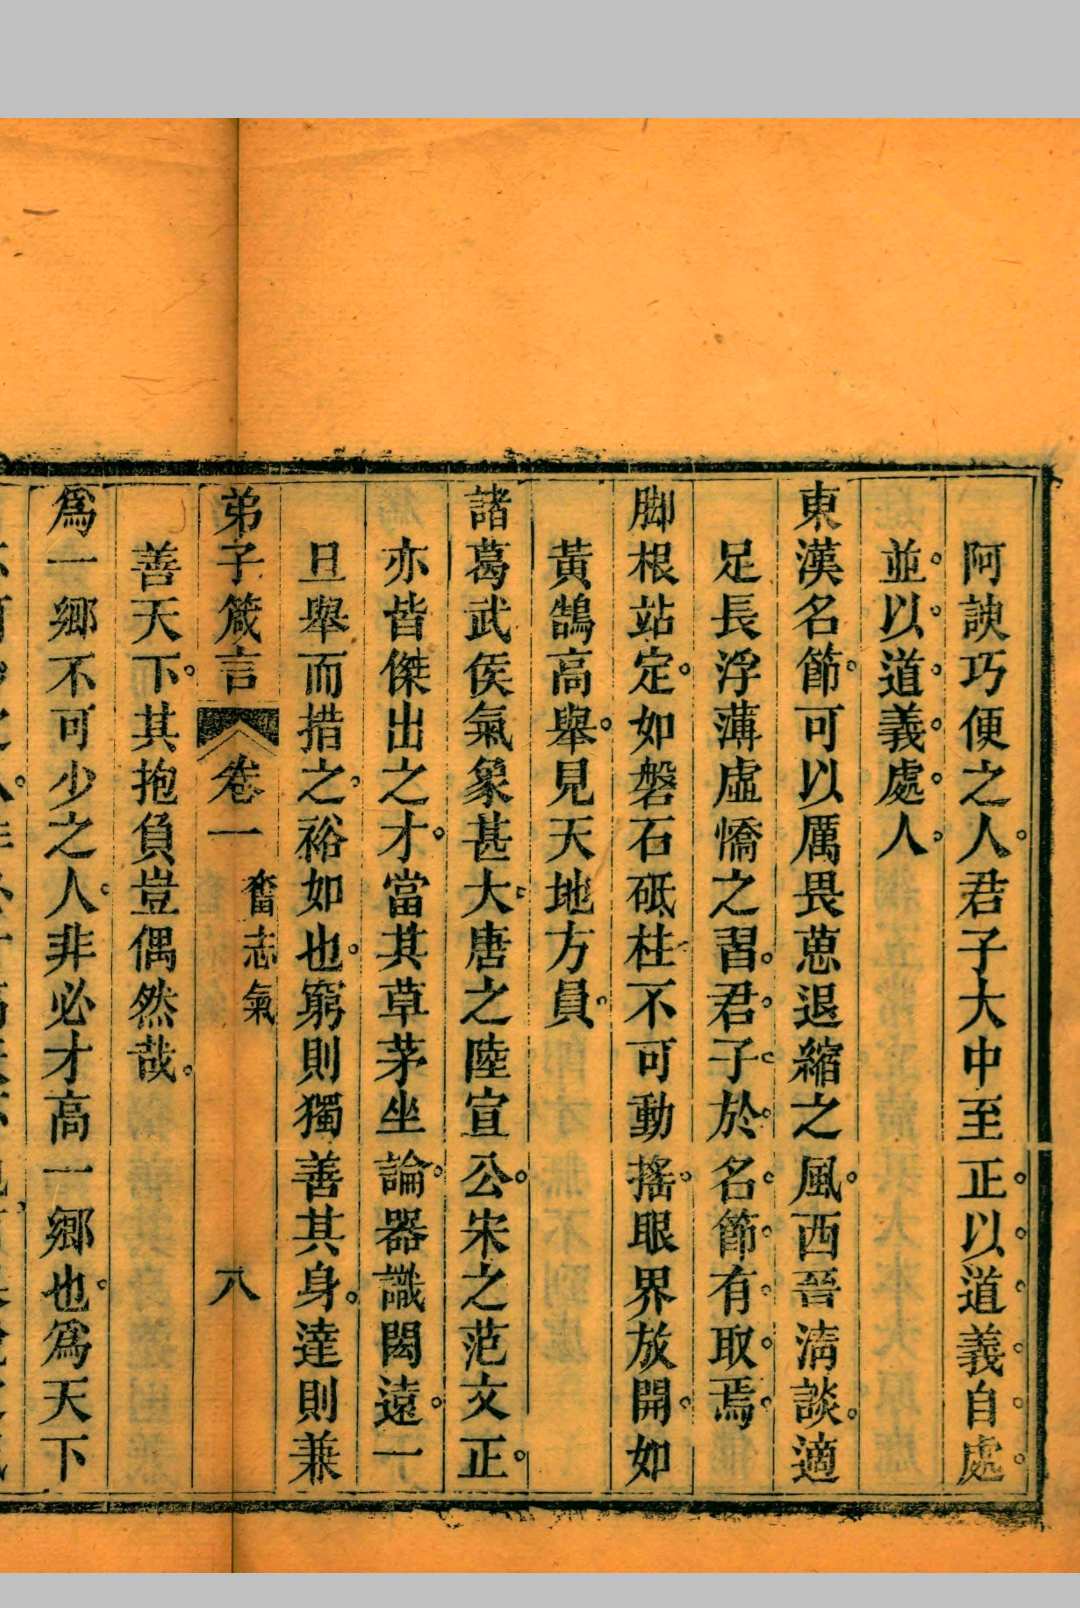 阿諛巧便之人君子大中至正以道義自處
並以道義處人
東漢名節可以厲畏葸退縮之風西晉清談適
足長浮薄虛憍之習君子於名節有取焉
脚根站定如磐石砥柱不可動搖眼界放開如
黃鵠高舉見天地方員
諸葛武侯氣象甚大唐之陸宣公宋之范文正
亦皆傑出之才當其草茅坐論器識閎遠一
旦舉而措之裕如也窮則獨善其身達則兼
弟子箴言 卷一 奮志氣 八
善天下其抱負豈偶然哉
爲一鄉不可少之人非必才高一鄉也爲天下